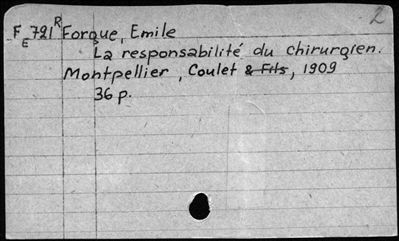 2
F E 721 R Forgue, Emile
La responsabilité du chirurgien.
Montpellier, Coulet & Fils, 1909
36 p.